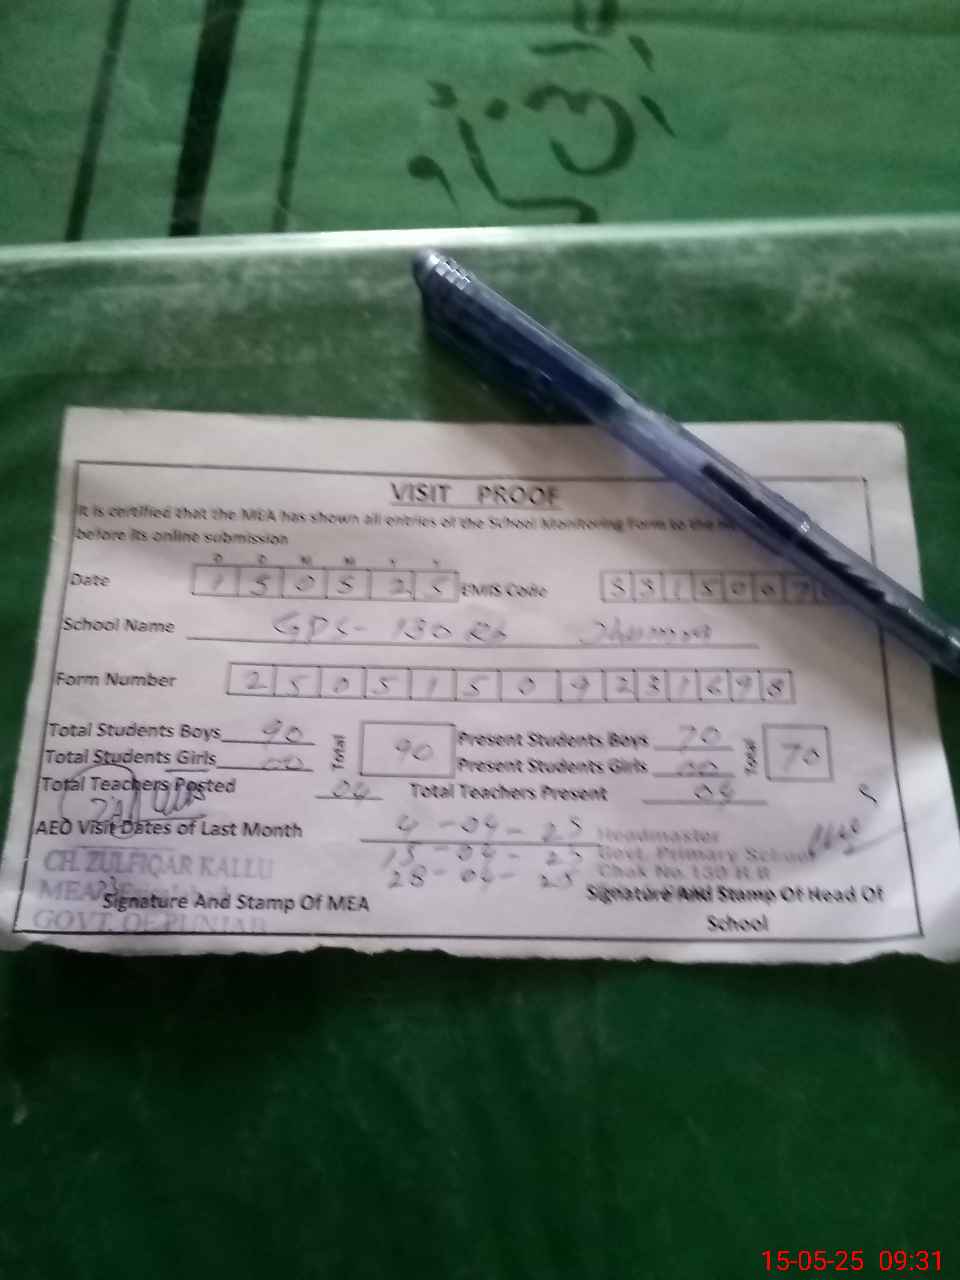 VISIT PROOF
It is certified that the MEA has shown all entries of the School Monitoring Form to the
before its online submission
D D M M Y Y
Date 1 5 0 5 2 5 EMIS Code 3 3 1 5 0 0 7
School Name GPS - 130 RB
Form Number 2 5 0 5 1 5 0 9 2 3 1 6 9 8
Total Students Boys 90 Total 90 Present Students Boys 70 Total 70
Total Students Girls 00 Present Students Girls 00
Total Teachers Posted 04 Total Teachers Present 04
AEO Visit Dates of Last Month 4-04-25 Headmaster
15-04-25 Govt. Primary School
CH. ZULFIQAR KALLU 28-04-25 Chak No. 130 R.B
MEA
Signature And Stamp Of MEA Signature And Stamp Of Head Of
School
GOVT. OF PUNJAB
15-05-25 09:31